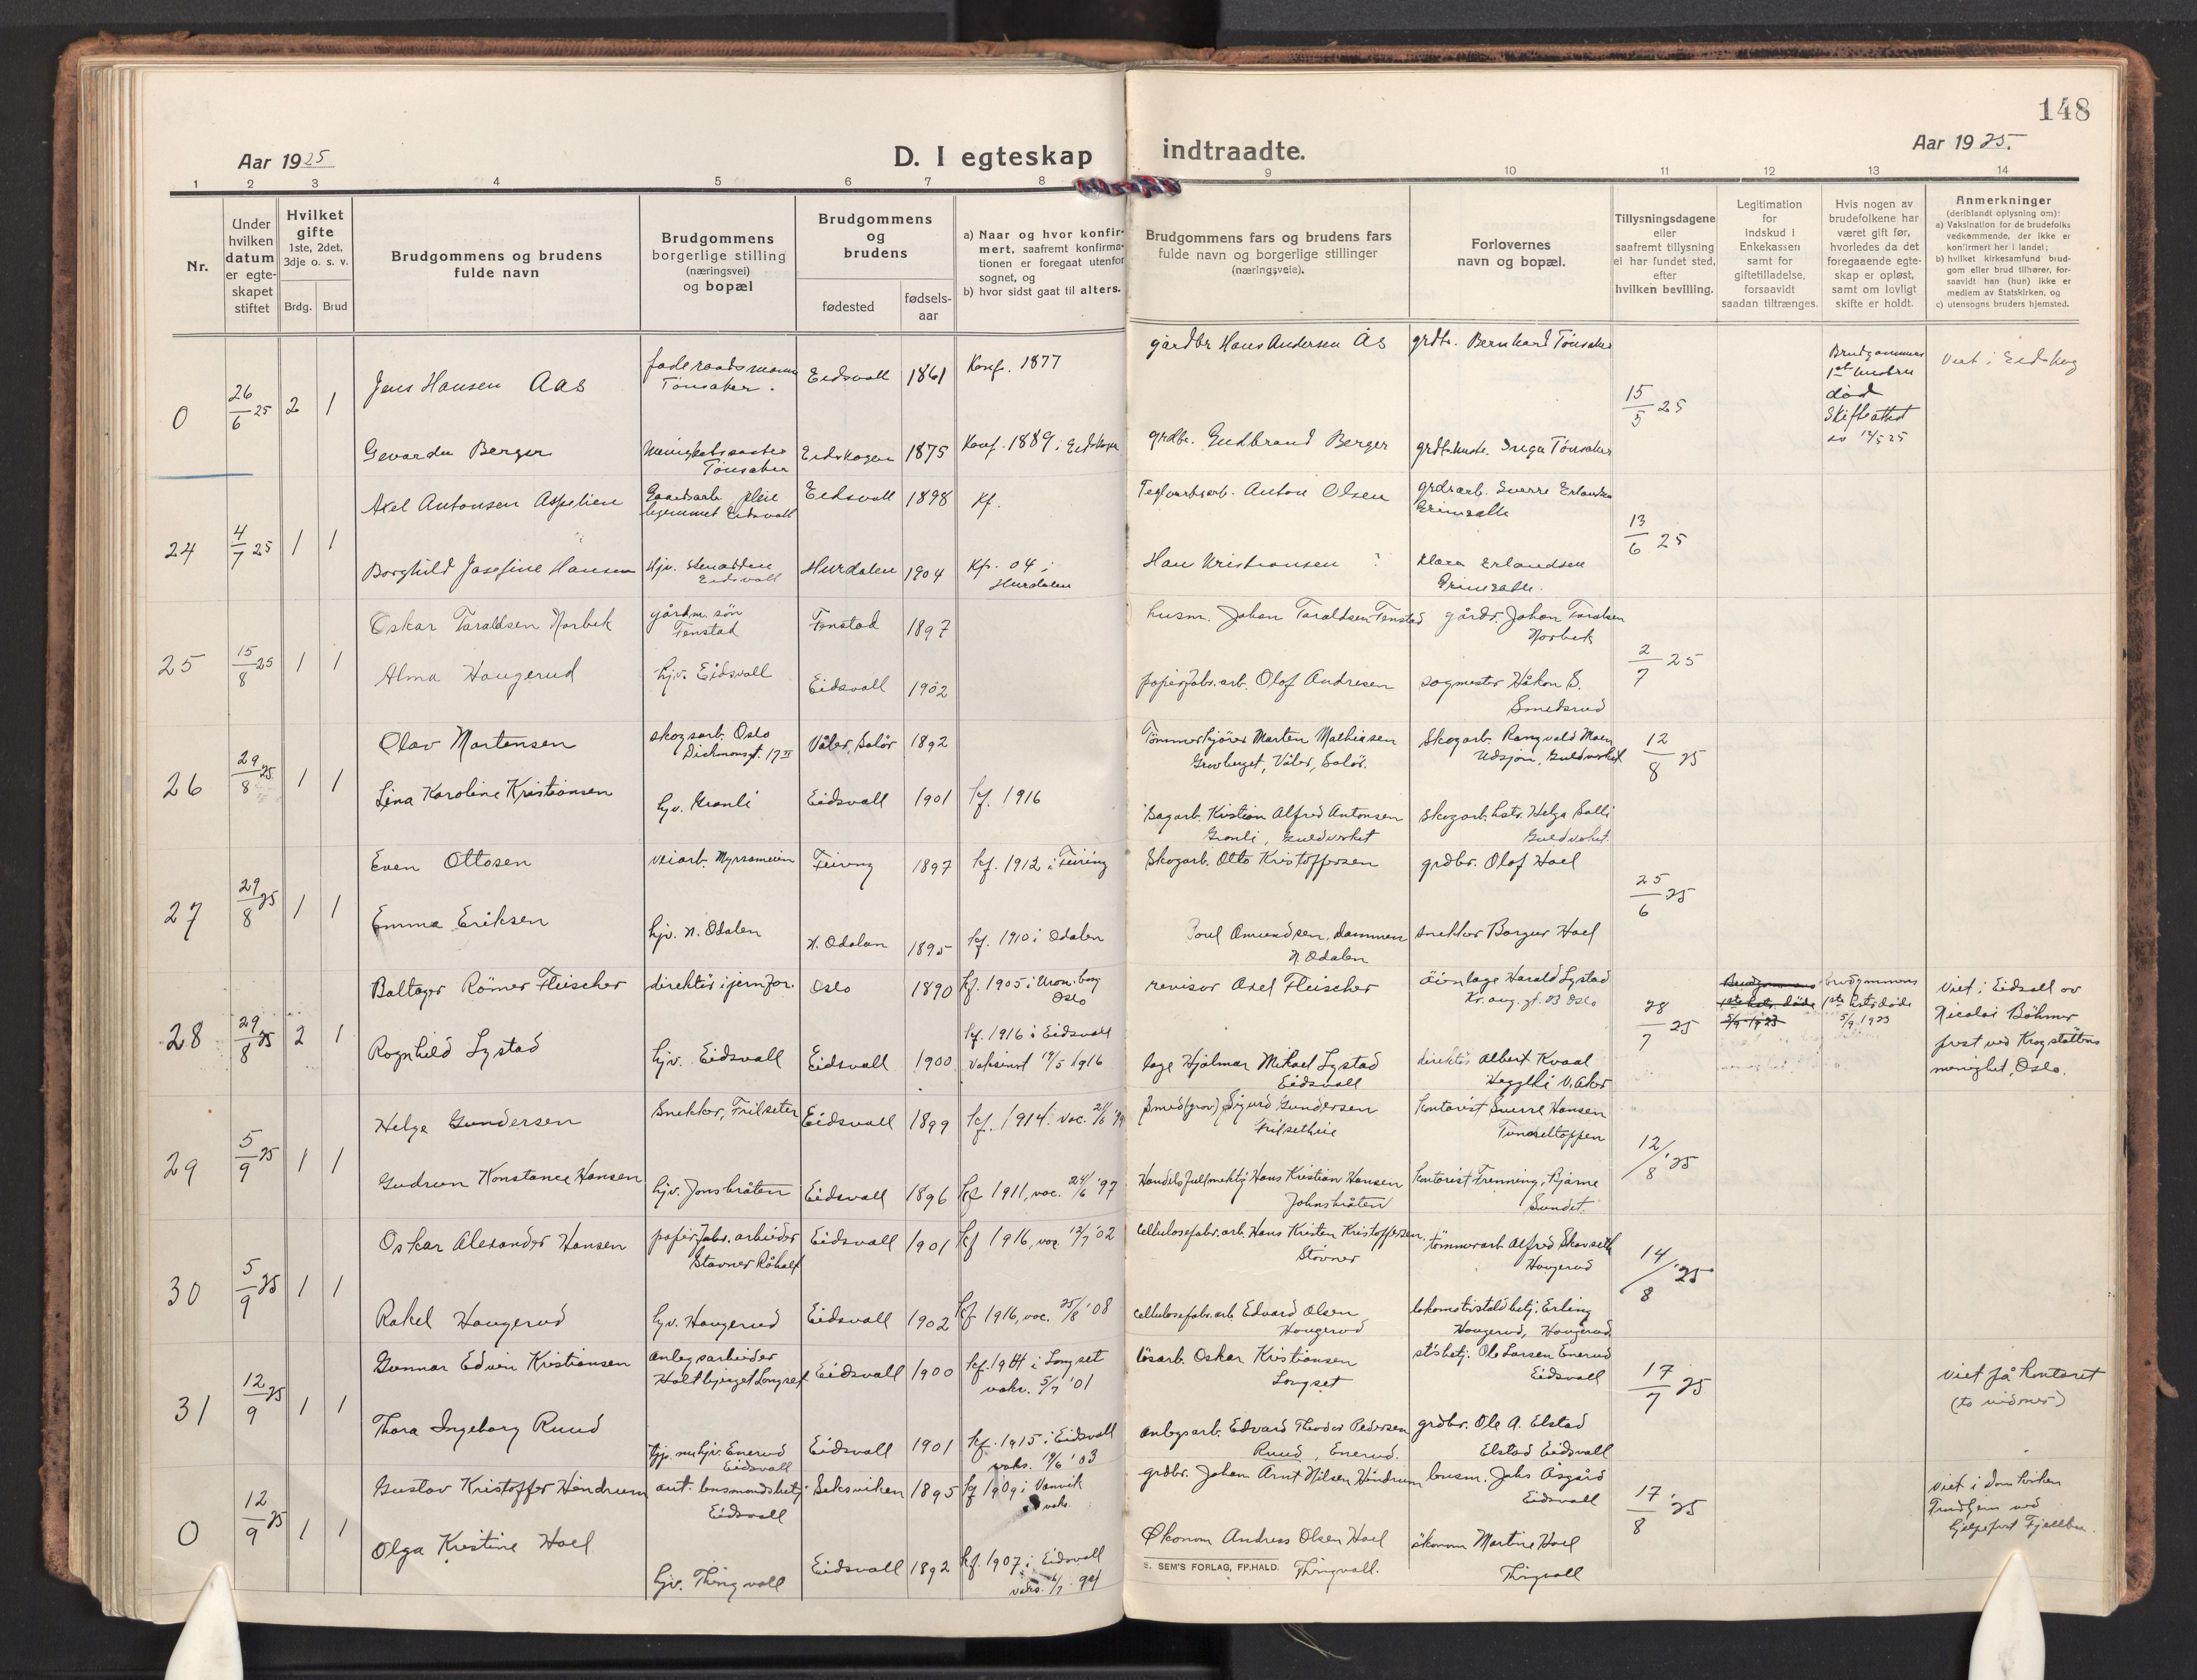 148
Aar 1925
D. I egteskap indtraadte.
Aar 1925.
1 2 3 4 5 6 7 8 9 10 11 12 13 14
Nr.
Under hvilken datum er egte-skapet stiftet
Hvilket gifte
1ste, 2det, 3dje o. s. v.
Brdg. Brud
Brudgommens og brudens fulde navn
Brudgommens borgerlige stilling (næringsvei) og bopæl
Brudgommens og brudens
fødested
fødsels-aar
a) Naar og hvor konfir-mert, saafremt konfirma-tionen er foregaat utenfor sognet, og
b) hvor sidst gaat til alters.
Brudgommens fars og brudens fars fulde navn og borgerlige stillinger (næringsveie).
Forlovernes navn og bopæl.
Tillysningsdagene eller saafremt tillysning ei har fundet sted, efter hvilken bevilling.
Legitimation for indskud i Enkekassen samt for giftetilladelse, forsaavidt saadan tiltrænges.
Hvis nogen av brudefolkene har været gift før, hvorledes da det foregaaende egte-skap er opløst, samt om lovligt skifte er holdt.
Anmerkninger
(deriblandt oplysning om):
a) Vaksination for de brudefolks vedkommende, der ikke er konfirmert her i landet;
b) hvilket kirkesamfund brud-gom eller brud tilhører, for-saavidt han (hun) ikke er medlem av Statskirken, og
c) utensogns bruders hjemsted.
0 26/6 25 2 1
Jens Hansen Aas
Tønsaker.
Eidsvoll 1861 Konf. 1877
gårdbr Hans Andersen Ås
grdbr. Bernhard Tønsaker
15/5 25
Brudgommens
1ste hustru
død
Skifteattest
Viet i Eidskog
Gevarda Berger
Tønsaker
Eidskogen 1875 Konf. 1889 i Eidskogen
grdbr. Gudbrand Berger
Inga Tønsaker
24 4/7 25 1 1
Axel Antonsen Aspelien
Eidsvoll
Eidsvoll 1898 Kf.
Teglverksarb. Anton Olsen
grdsarb. Sverre Erlandsen
13/6 25
Borghild Josefine Hansen
Hjv.
Eidsvoll
Hurdalen 1904 Kf. 04 i
Hurdalen
Hans Kristiansen ?
Klara Erlandsen
25 15/8 25 1 1
Oskar Taraldsen Norbek
gårdm. søn
Fenstad
Fenstad 1897
husm. Johan Taraldsen Fenstad
gårdr. Johan Taralsen
Norbek
2/7 25
Alma Haugerud
hjv. Eidsvoll
Eidsvoll 1902
papirfabr.arb. Olof Andresen
sagmester Håkon S.
Smedsrud
26 29/8 25 1 1
Olav Martensen
skogsarb. Oslo
Våler, Solør 1892
Tømmerkjører Marten Mathiasen
Gravberget, Våler, Solør.
Skogarb. Rangvald Moen
Udsjøn, Guldverket
12/8 25
Lina Karoline Kristiansen
hjv. Granli
Eidsvall 1901 kf. 1916
Sagarb. Kristian Alfred Antonsen
Granli, Guldverket
Skogarb. hstr. Helga Solli
Guldverket.
27 29/8 25 1 1
Even Ottosen
veiarb. Myrsameien
Feiring 1897 kf. 1912 i Feiring
Skogarb. Otto Kristoffersen
grdbr. Olof Hoel
25/6 25
Emma Eriksen
hjv. N. Odalen
N. Odalen 1895 kf. 1910 i Odalen
Amundsen, Dammen
N. Odalen
snekker Borger Hoel
28 29/8 25 2 1
Baltazar Rømer Fleischer
direktør i jernfor.
Oslo 1890 kf. 1905 i Uran.borg
Oslo
revisor Axel Fleischer
øienlæge Harald Lystad
Kr. aug. gt. 23 Oslo
28/7 25
Brudgommens
1ste hstr. døde
5/9 1923
brudgommens
1ste hstr døde
5/9 1923
Viet i Eidsvoll av
Nicolai Böhmer
prest ved Krogstøttens
menighet, Oslo.
Ragnhild Lystad
hjv. Eidsvall
Eidsvall 1900 kf. 1916 i Eidsvall
Vaksinert 17/5 1916
læge Hjalmar Mikael Lystad
Eidsvall
direktør Albert Kvaal
Heggeli V. Aker
29 5/9 25 1 1
Helge Gundersen
Snekker, Frilseter
Eidsvall 1899 kf. 1914. vac.
Smed (grov) Sigurd Gundersen
kontorist Sverre Hansen
Tunneltoppen
12/8 '25
Gudrun Konstance Hansen
hjv. Jonsbråten
Eidsvall 1896 kf 1911, vac. 24/6 '97
Handelsfullmektig Hans Kristian Hansen
Johnsbråten
kontorist Frenning, Bjarne
Sundet.
30 5/9 25 1 1
Oskar Alexander Hansen
papirfabr. arbeider
Stavner Råholt
Eidsvall 1901 kf 1916, vac. 12/7 '02
cellulosefabr.arb. Hans Kristen Kristoffersen.
Stavner
tømmerarb Alfred Skavseth
Haugerud
14/8 '25
Rakel Haugerud
hjv. Haugerud
Eidsvall 1902 kf 1916, vac. 25/8 '08
cellulosefabr.arb. Edvard Olsen
Haugerud
lokomotivstaldbetj. Erling
Haugerud, Haugerud.
31 12/9 25 1 1
Gunnar Edvin Kristiansen
anlegsarbeider
Holtbjerget Langset
Eidsvall 1900 kf. 1914 i Langset
vaks. 5/7 '01
løsarb. Oskar Kristiansen
Langset
st'sbetj. Ole Larsen Enerud
Eidsvall
17/7 25
viet på kontoret
(to vidner)
Thora Ingeborg Ruud
hjv. Enerud
Eidsvall
Eidsvall 1901 kf. 1915 i Eidsvall
vaks. 19/6 '03
anlegsarb. Edvard Theodor Pedersen
Ruud, Enerud.
grdbr. Ole A. Elstad
Elstad Eidsvall
0 12/9 25 1 1
Gustav Kristoffer Hindrum
aut. lensmandsbetj.
Eidsvall
Leksviken 1895 kf 1909 i Vanvik
vaks.
grdbr. Johan Arnt Nilsen Hindrum
lensm. Johs Åsgård
Eidsvall
17/8 '25
viet i Domkirken
Trondhjem ved
hjelpeprest
Olga Kristine Hoel
hjv. Thingvoll
Eidsvall 1892 kf. 1907 i Eidsvall
Økonom Andreas Olsen Hoel
Thingvall.
økonom Martine Hoel
Thingvall
E. SEM'S FORLAG, FR.HALD.